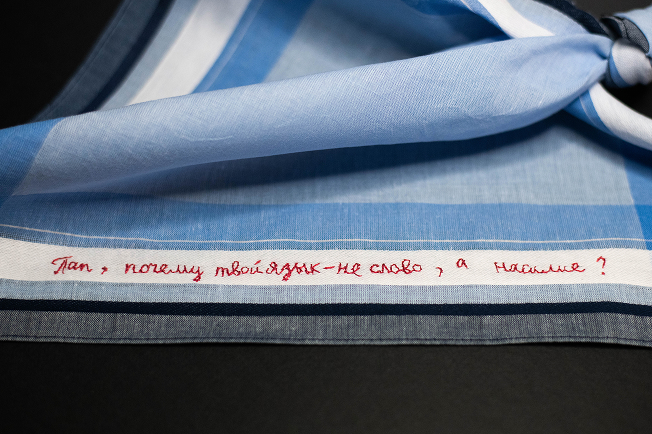 Пап, почему твой язык-не слово, а насилие?